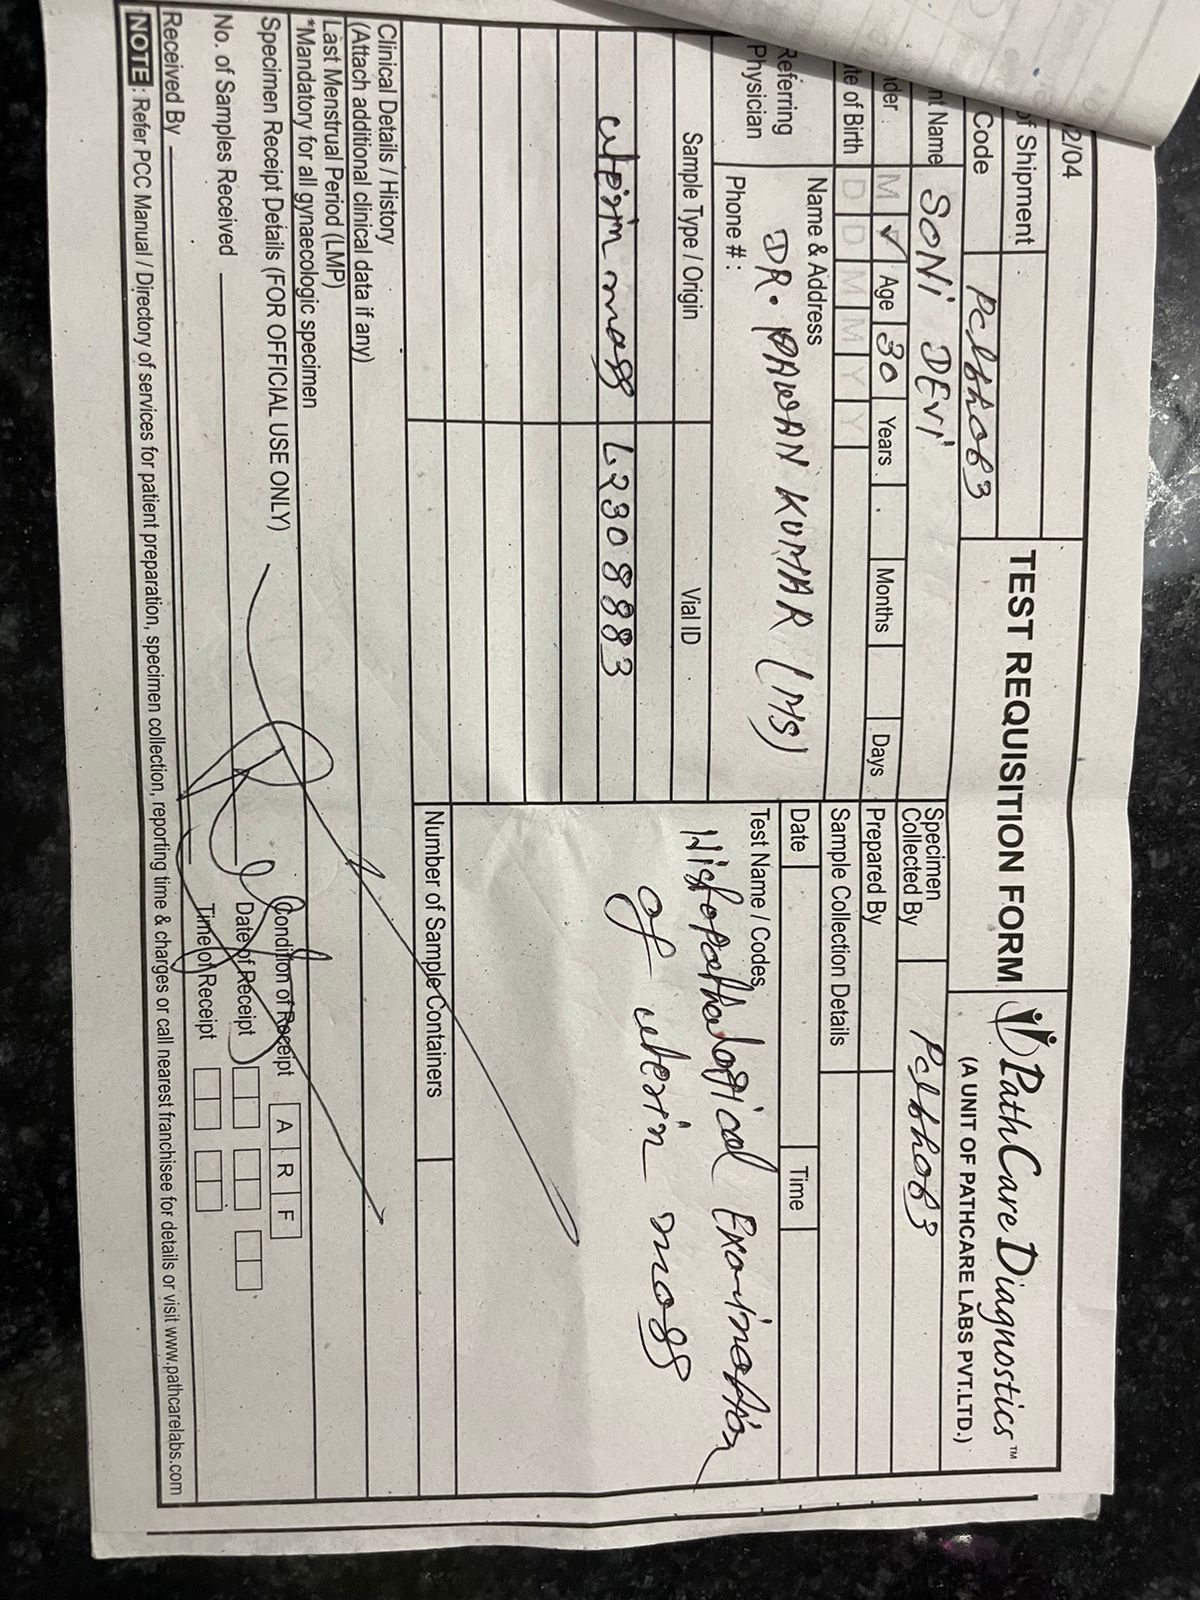 2/04
TEST REQUISITION FORM
PathCare Diagnostics™
(A UNIT OF PATHCARE LABS PVT.LTD.)
of Shipment
Code
nt Name SONI DEVI
der M ✓ Age 30 Years Months Days
te of Birth D D M M Y Y
Referring Physician
Name & Address
DR. PAWAN KUMAR (MS)
Phone # :
Specimen Collected By
Prepared By
Sample Collection Details
Date Time
Sample Type / Origin Vial ID
uterin mass L2308883
Test Name / Codes
Histopathological Examination
of uterin mass
Number of Sample Containers
Clinical Details / History
(Attach additional clinical data if any)
Last Menstrual Period (LMP)
*Mandatory for all gynaecologic specimen
Specimen Receipt Details (FOR OFFICIAL USE ONLY)
Condition of Receipt A R F
No. of Samples Received
Date of Receipt
Received By
Time of Receipt
NOTE : Refer PCC Manual / Directory of services for patient preparation, specimen collection, reporting time & charges or call nearest franchisee for details or visit www.pathcarelabs.com